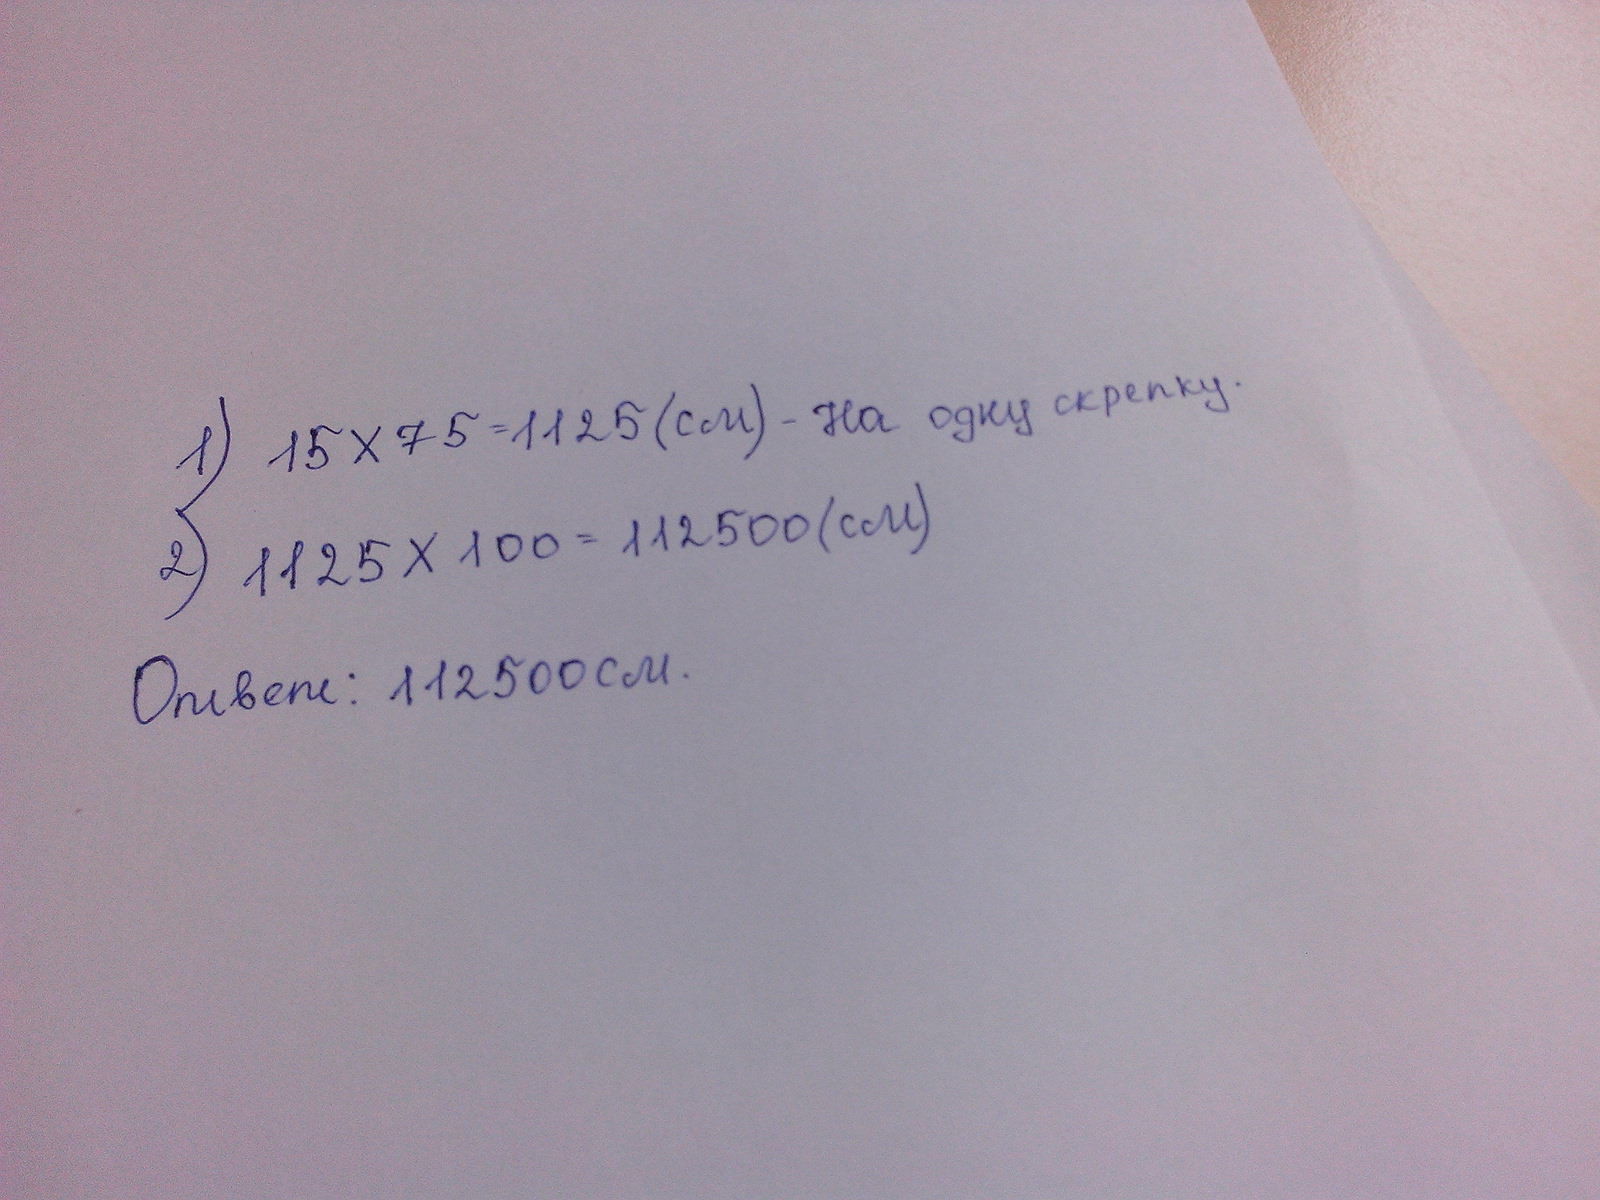 1) 15 X 75 = 1125 (см) - На одну скрепку.
2) 1125 X 100 = 112500 (см)
Ответ: 112500 см.